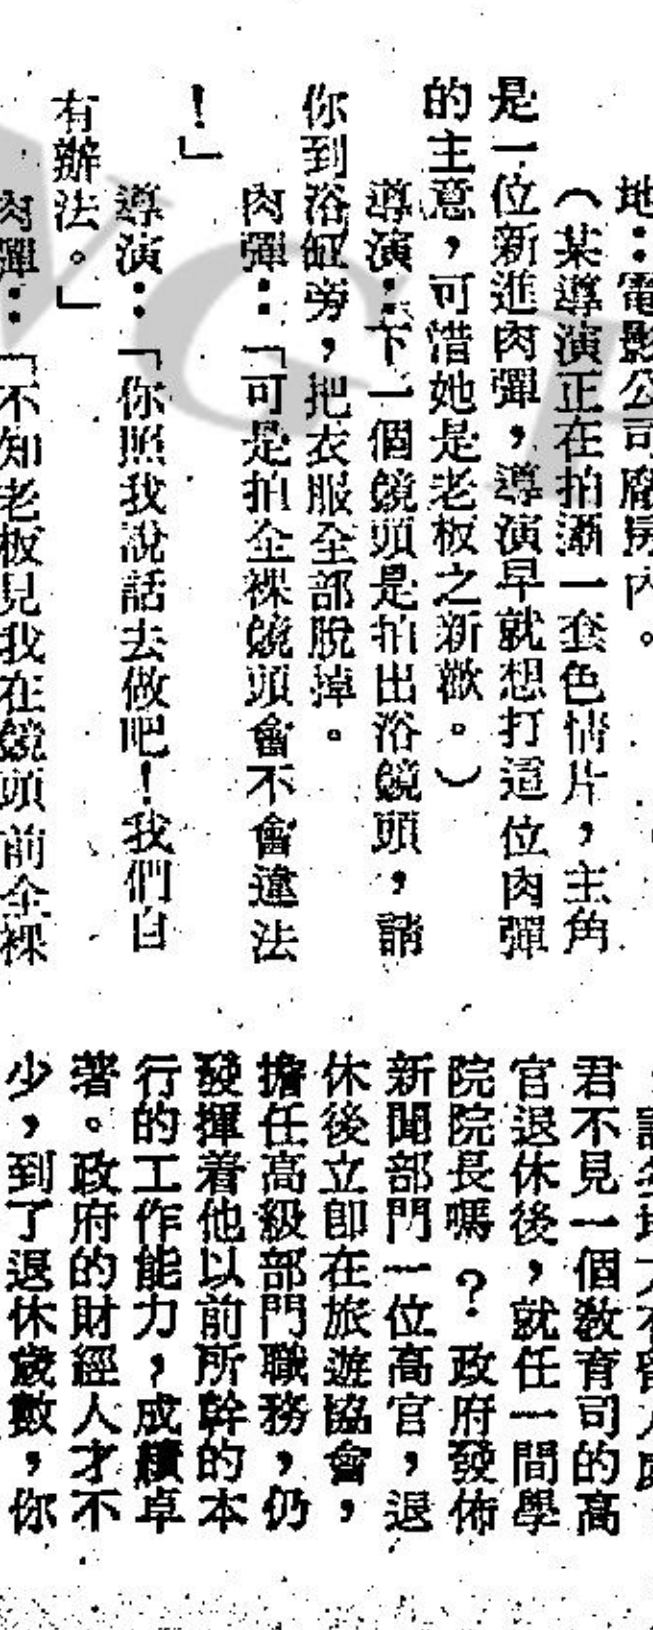 地：電影公司廠房內。
（某導演正在拍攝一套色情片，主角
是一位新進肉彈，導演早就想打這位肉彈
的主意，可惜她是老板之新歡。）
導演：下一個鏡頭是拍出浴鏡頭，請
你到浴缸旁，把衣服全部脫掉。
肉彈：「可是拍全裸鏡頭會不會違法
！」
導演：「你照我說話去做吧！我們自
有辦法。」
肉彈：「不知老板見我在鏡頭前全裸
君不見一個教育司的高
官退休後，就任一間學
院院長嗎？政府發佈
新聞部門一位高官，退
休後立卽在旅遊協會，
擔任高級部門職務，仍
發揮着他以前所幹的本
行的工作能力，成績卓
著。政府的財經人才不
少，到了退休歲數，你